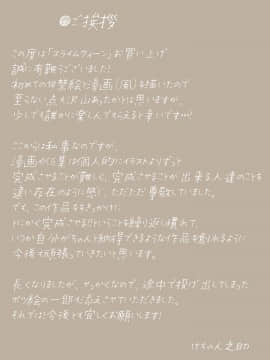 ご挨拶
この度は「スライムクィーン」お買い上げ
誠に有難うございました!
初めての状態絵と漫画(風)を描いたので
至らない点も沢山あったかとは思いますが、
少しでも誰かに楽しんでもらえると幸いですm!
ここからは私事なのですが、
漫画やCG集は個人的にイラストよりずっと
完成させることが難しく、完成させることが出来る人達のことを
遠い存在のように感じ、ただただ尊敬していました。
でも、この作品をきっかけに
とにかく完成させる!!ということを繰り返し慣れて、
いつか自分がちゃんと納得できるような作品を創れるように
今後も頑張っていきたいと思います。
長くなりましたが、せっかくなので、途中で投げ出してしまった
ボツ絵の一部も添えさせていただきました。
それでは!今後とも宜しくお願いします!
之助